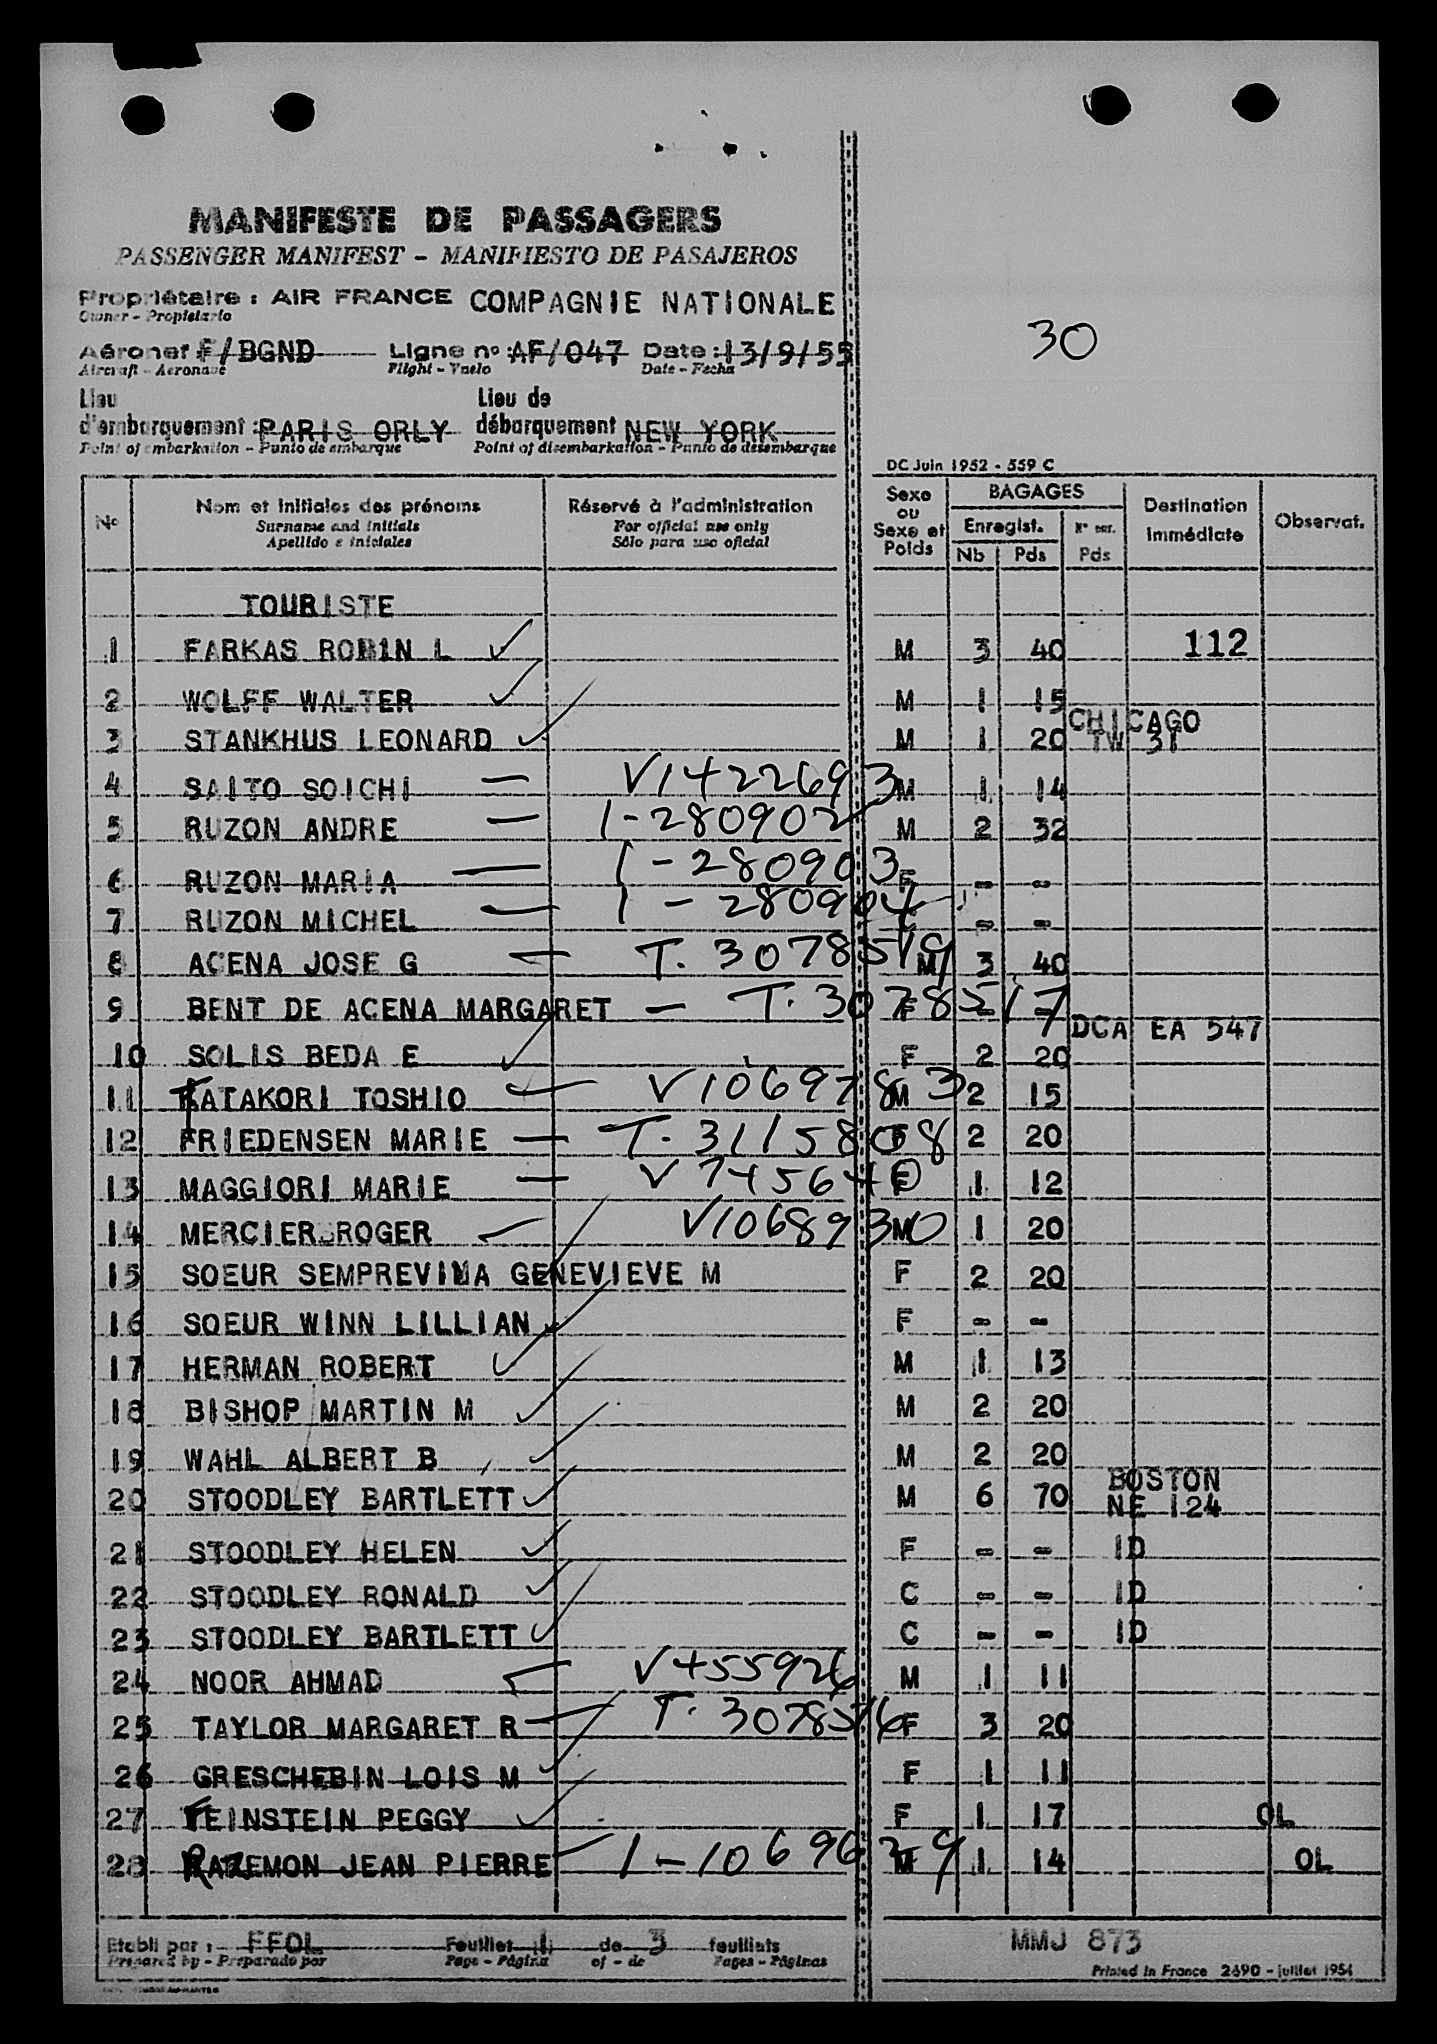 MANIFESTE DE PASSAGERS
PASSENGER MANIFEST - MANIFIESTO DE PASAJEROS
Propriétaire : AIR FRANCE COMPAGNIE NATIONALE
Owner - Propietario
30
Aéronef F/BGND Ligne no AF/047 Date : 13/9/55
Aircraft - Aeronave Flight - Vuelo Date - Fecha
Lieu d'embarquement : PARIS ORLY Lieu de débarquement NEW YORK
Point of embarkation - Punto de embarque Point of disembarkation - Punto de desembarque
DC Juin 1952 - 559 C
No Nom et initiales des prénoms Réservé à l'administration Sexe ou Sexe et Poids BAGAGES Destination immédiate Observat.
Surname and initials For official use only Enregist.
Apellido e iniciales Sólo para uso oficial Nb Pds Pds
TOURISTE
1 FARKAS ROBIN L M 3 40 112
2 WOLFF WALTER M 1 15
3 STANKHUS LEONARD M 1 20 CHICAGO TW 31
4 SAITO SOICHI — V1422693 M 1 14
5 RUZON ANDRE — 1-280902 M 2 32
6 RUZON MARIA — 1-280903 F - -
7 RUZON MICHEL — 1-280904 - -
8 ACENA JOSE G — T. 3078519 M 3 40
9 BENT DE ACENA MARGARET — T. 3078517 F - -
10 SOLIS BEDA E F 2 20 DCA EA 547
11 KATAKORI TOSHIO — V1069783 M 2 15
12 FRIEDENSEN MARIE — T. 3115808 F 2 20
13 MAGGIORI MARIE — V745640 F 1 12
14 MERCIER ROGER — V1068930 M 1 20
15 SOEUR SEMPREVINA GENEVIEVE M F 2 20
16 SOEUR WINN LILLIAN F - -
17 HERMAN ROBERT M 1 13
18 BISHOP MARTIN M M 2 20
19 WAHL ALBERT B M 2 20
20 STOODLEY BARTLETT M 6 70 BOSTON NE 124
21 STOODLEY HELEN F - - ID
22 STOODLEY RONALD C - - ID
23 STOODLEY BARTLETT C - - ID
24 NOOR AHMAD V455926 M 1 11
25 TAYLOR MARGARET R — T. 3078516 F 3 20
26 GRESCHEBIN LOIS M F 1 11
27 FEINSTEIN PEGGY F 1 17 OL
28 RAZEMON JEAN PIERRE 1-1069639 M 1 14 OL
Etabli par : FFOL Feuillet 1 de 3 feuillets MMJ 873
Prepared by - Preparado por Page - Página of - de Pages - Páginas Printed in France 2690 - juillet 1954